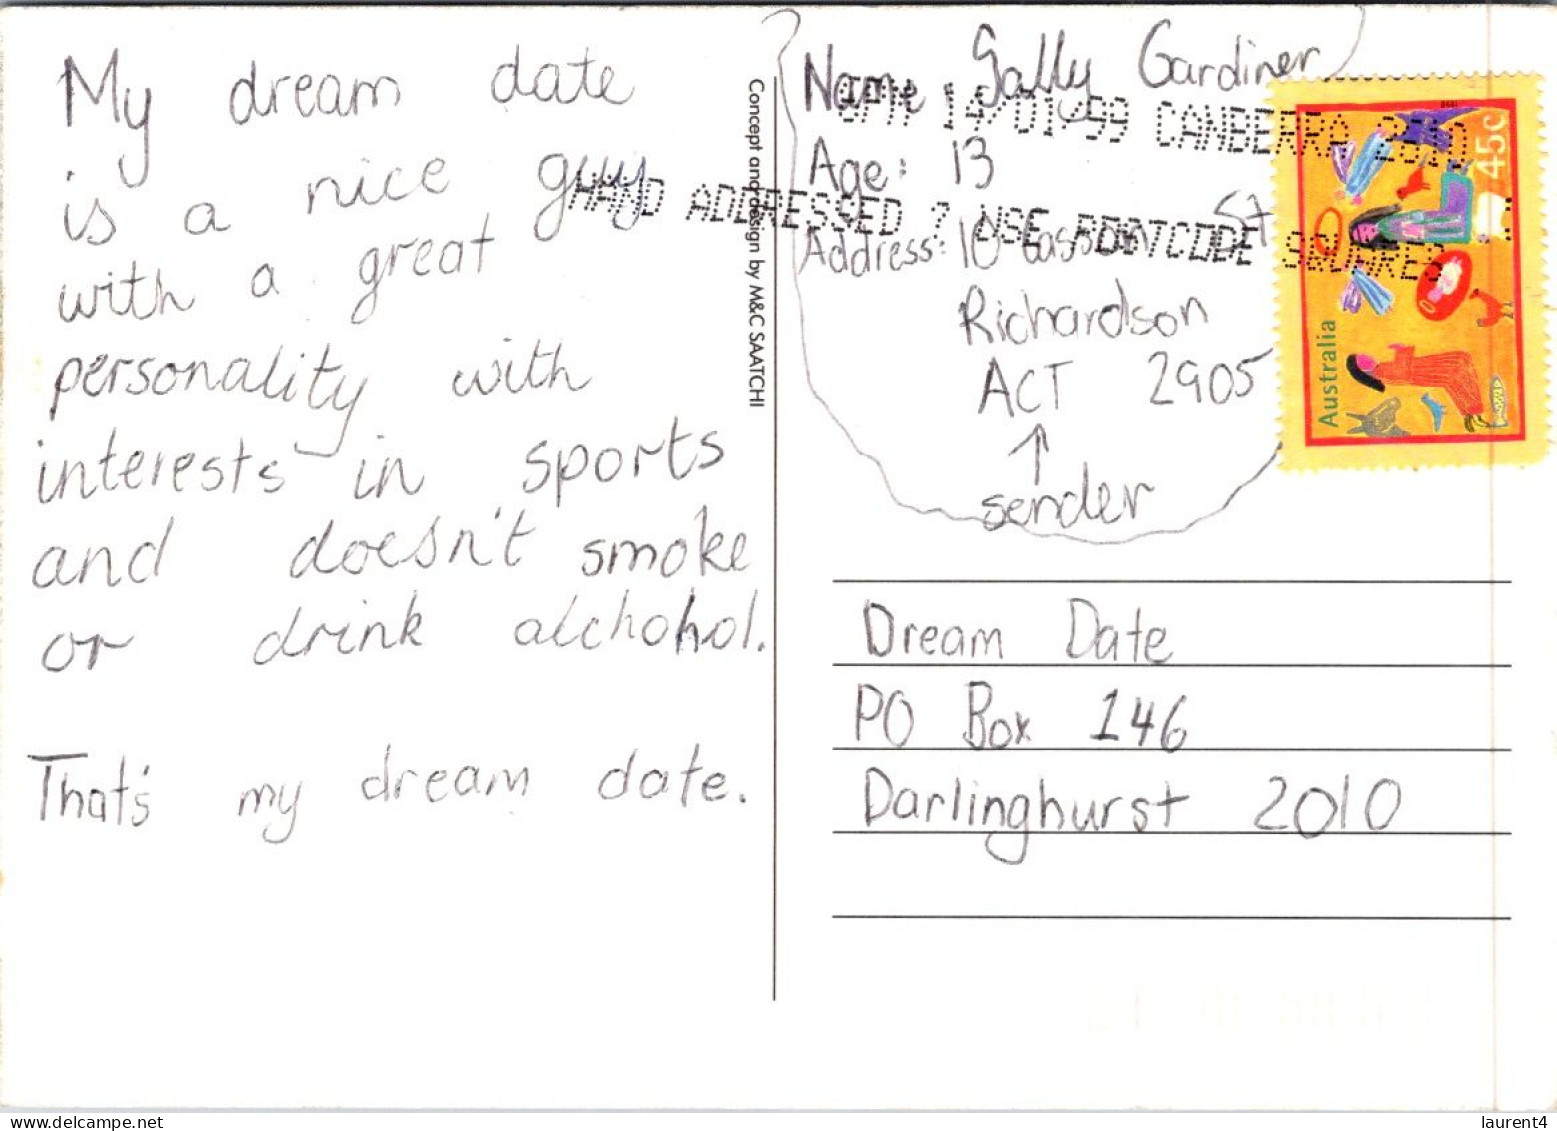 My dream date
is a nice guy
with a great
personality with
interests in sports
and doesn't smoke
or drink alchohol.
That's my dream date.
Concept and design by M&C SAATCHI
Name Sally Gardiner
6PM 14/01/99 CANBERRA 2610
Age: 13
HAND ADDRESSED ? USE POSTCODE SQUARES
Address: 10 St
Richardson
ACT 2905
↑
sender
Australia 45c
Dream Date
PO Box 146
Darlinghurst 2010
laurent4